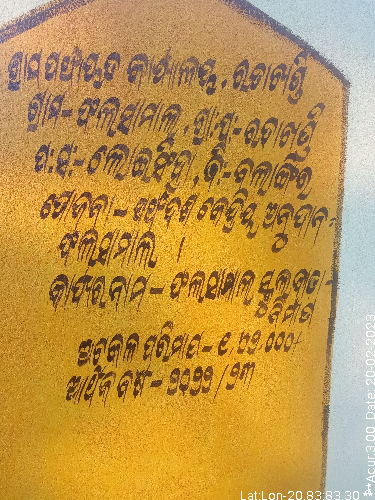 ଗ୍ରାମ ପଞ୍ଚାୟତ କାର୍ଯ୍ୟାଳୟ, ରବାଚାଣ୍ଡି
ଗ୍ରାମ- ଫଲସାମାଲ, ଗ୍ରା:ପ- ରବାଚାଣ୍ଡି
ପ:ସ:- ଲୋଇସିଂହା, ଜି:- ବଲାଙ୍ଗିର
ଯୋଜନା - ପଞ୍ଚଦଶ କେନ୍ଦ୍ରିୟ ଅନୁଦାନ-
ଫଲସାମାଲ ।
କାର୍ଯ୍ୟର ନାମ- ଫଲସାମାଲ ସ୍କୁଲ ବାଡ-
ନିର୍ମାଣ
ଅଟକଳ ପରିମାଣ-
ଆର୍ଥିକ ବର୍ଷ - ୨୦୨୨/୨୩
Lat:Lon-20.83:83.30
**Acur:3.00 Date: 20-02-2023